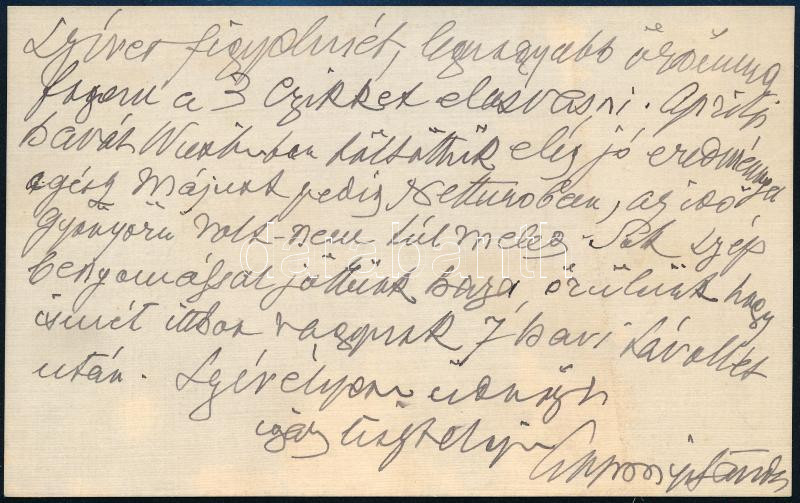 szíves figyelmét, legnagyobb örömmel
fogom a 3 czikket elolvasni. Április
havát Wiesbadenban töltöttük elég jó eredménnyel
egész Májust pedig Nettunoban, az idő
gyönyörű volt - nem túl meleg. Sok szép
benyomással jöttünk haza, örülünk hogy
ismét itthon vagyunk 7 havi távollét
után. Szívélyesen üdvözli
igaz tisztelője
Apponyi Sándor
darabanth